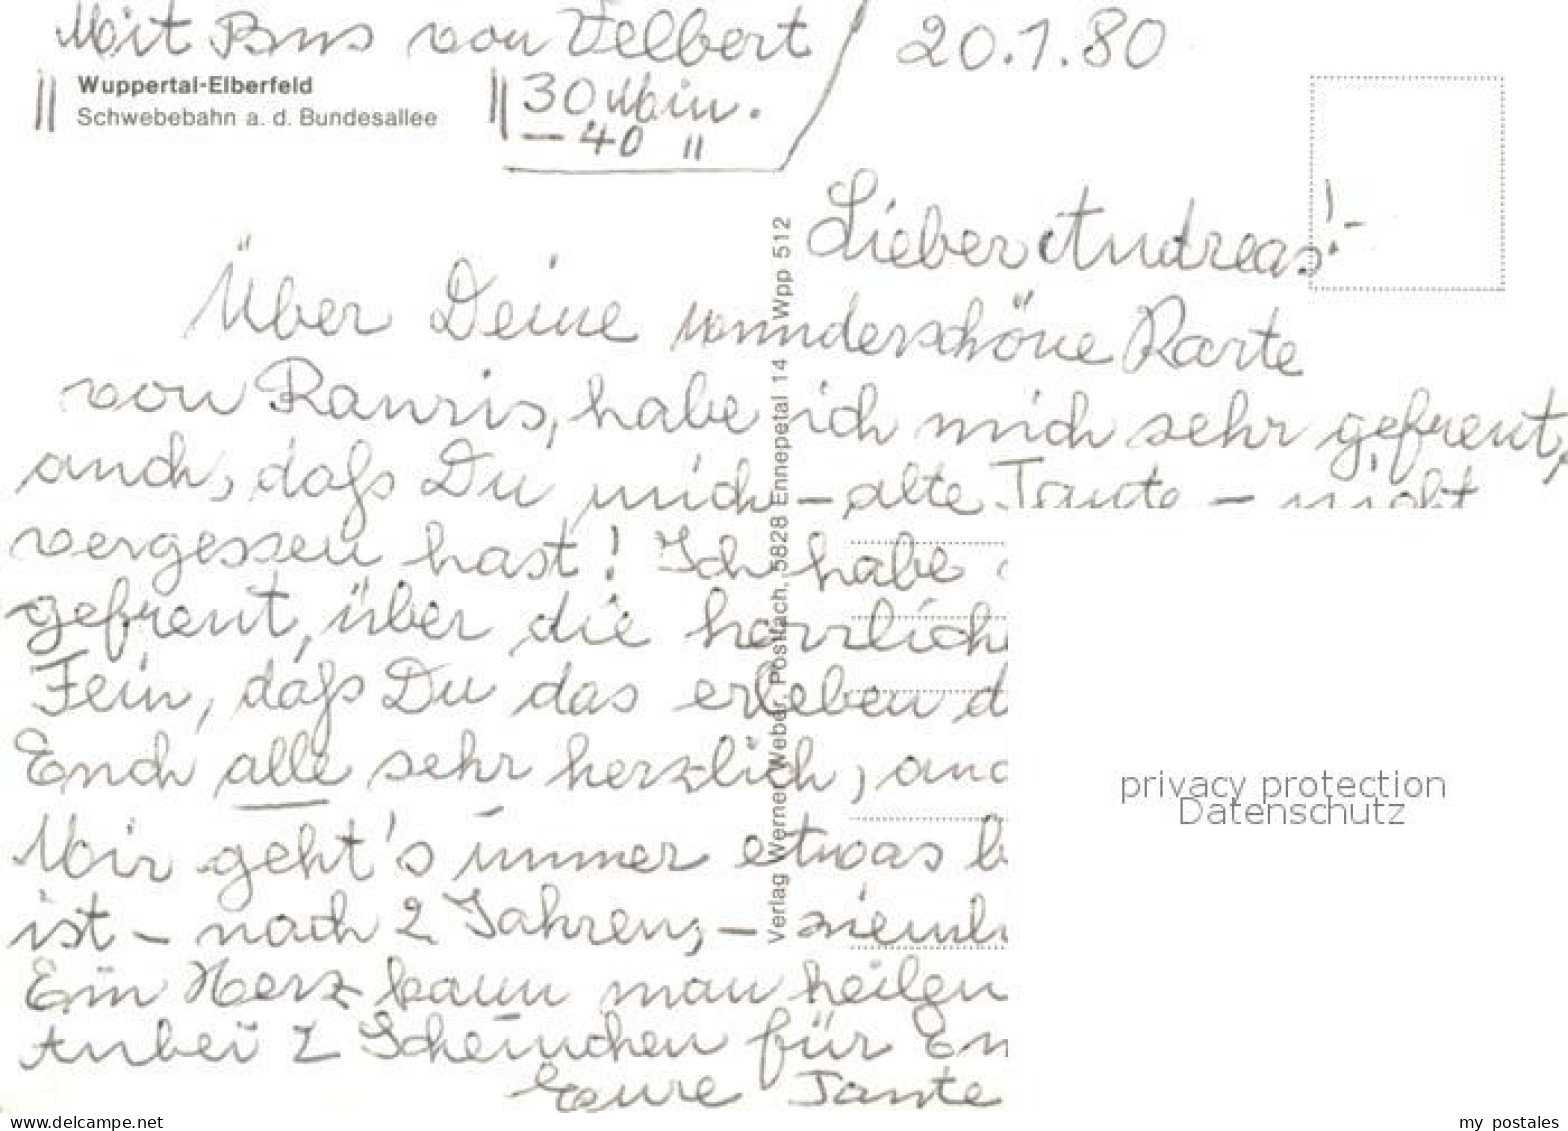 Mit Bus von Velbert 20.1.80
Wuppertal-Elberfeld
Schwebebahn a. d. Bundesallee
30 Min.
– 40 "
Lieber Andreas!–
Über Deine wunderschöne Karte
von Rauris, habe ich mich sehr gefreut,
auch, daß Du mich – alte Tante – nicht
vergessen hast! Ich habe
gefreut, über die herrliche
Fein, daß Du das erleben d
Euch alle sehr herzlich, auc
Mir geht's immer etwas b
ist – nach 2 Jahren, – ziemli
Ein Herz kann man heilen
Anbei 2 Scheinchen für Eu
Eure Tante
Verlag Werner Weber, Postfach, 5828 Ennepetal 14 Wpp 512
privacy protection
Datenschutz
www.delcampe.net
my_postales